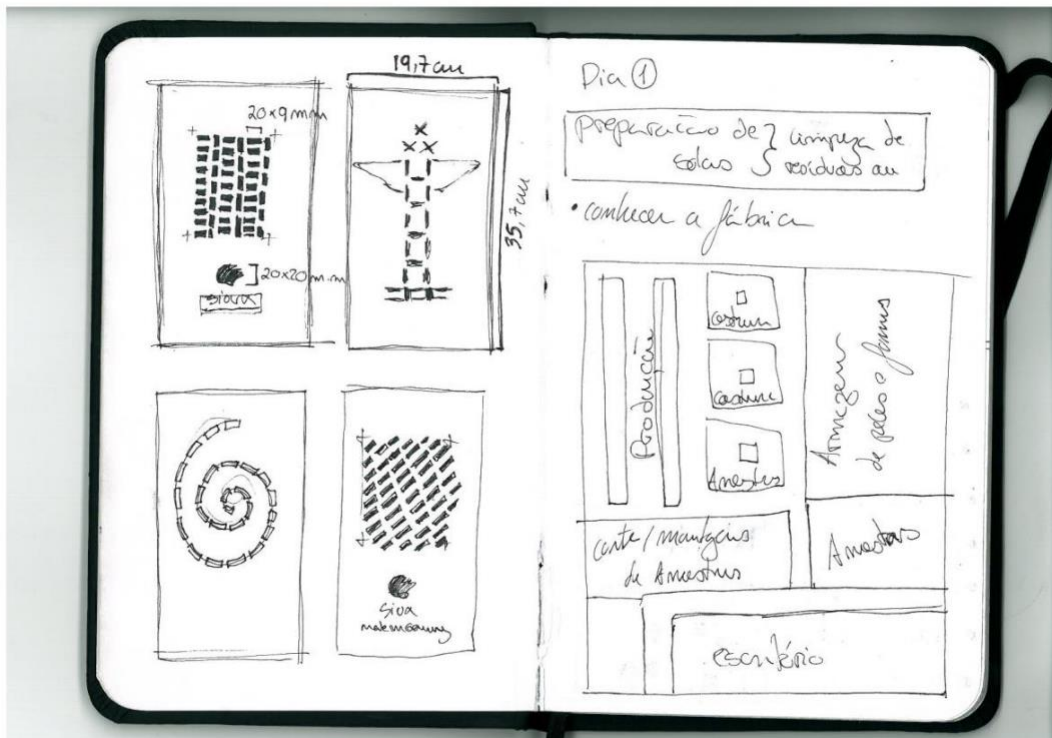 19,7cm
20x9mm
35,7cm
20x20mm
Siva
Dia 1
preparação de } limpeza de
solas } resíduos
• conhecer a fábrica
Produção
costura
costura
Amostras
Armazém
de peles e formas
corte/montagens
de Amostras
Amostras
escritório